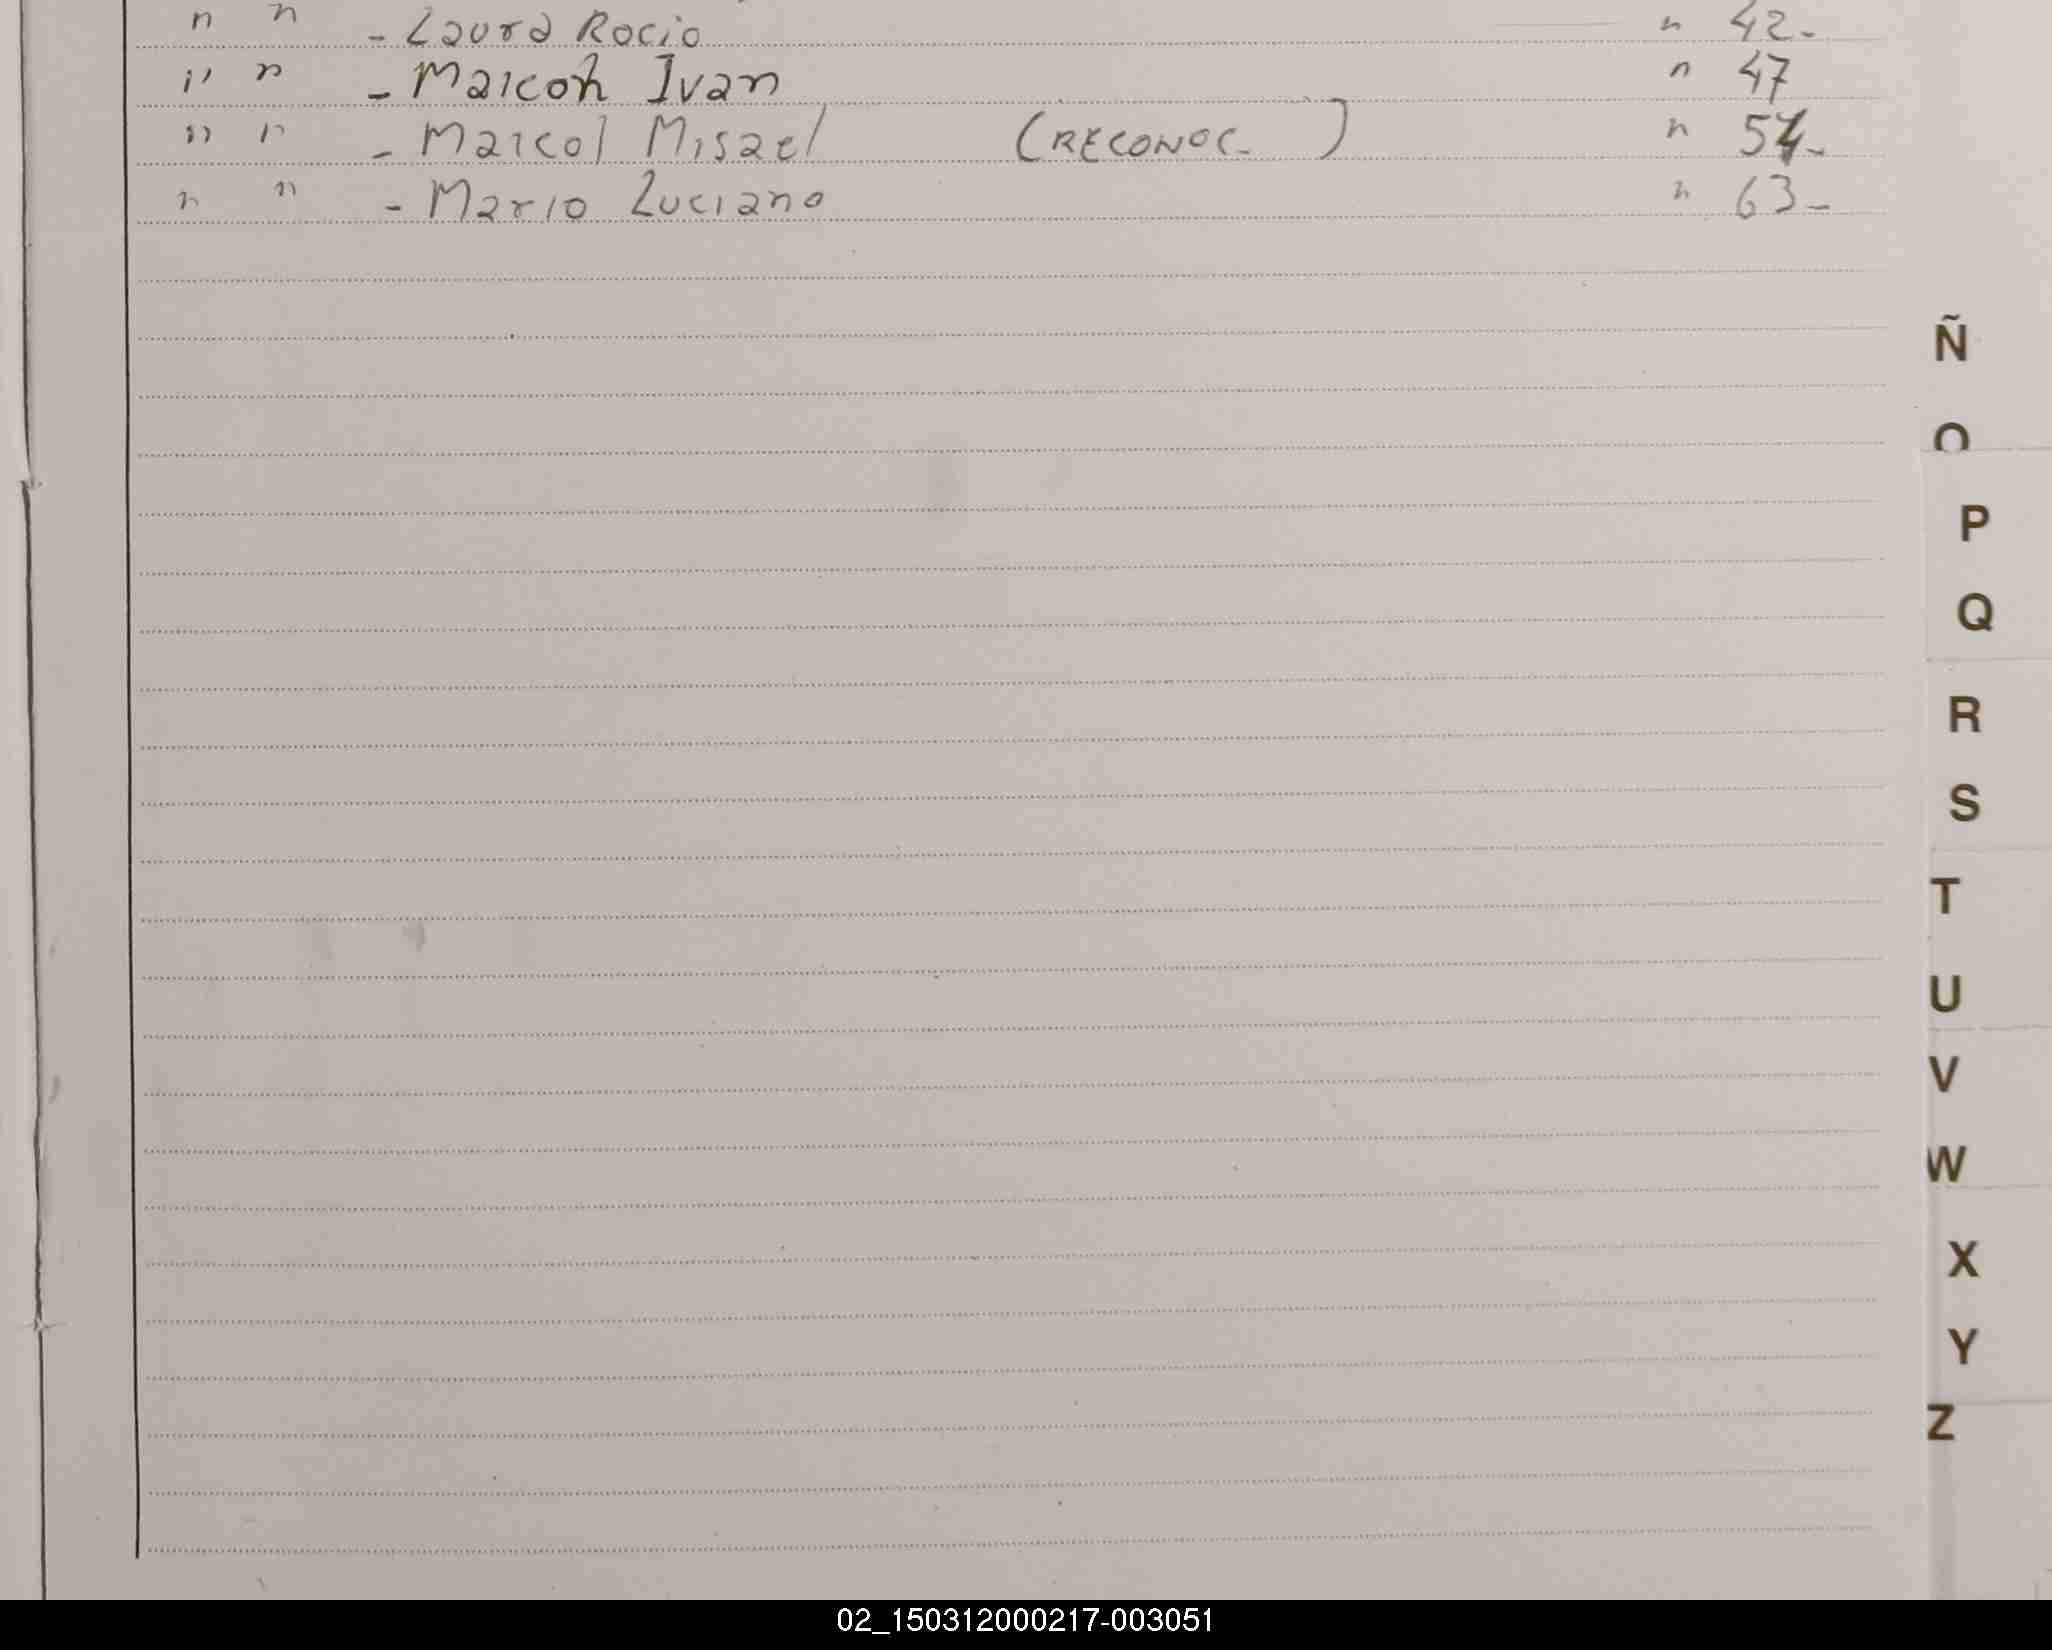 " " - Laura Rocio " 42-
" " - Maicon Ivan " 47
" " - Maicol Misael (RECONOC. ) " 54-
" " - Mario Luciano " 63-
Ñ
O
P
Q
R
S
T
U
V
W
X
Y
Z
02_150312000217-003051